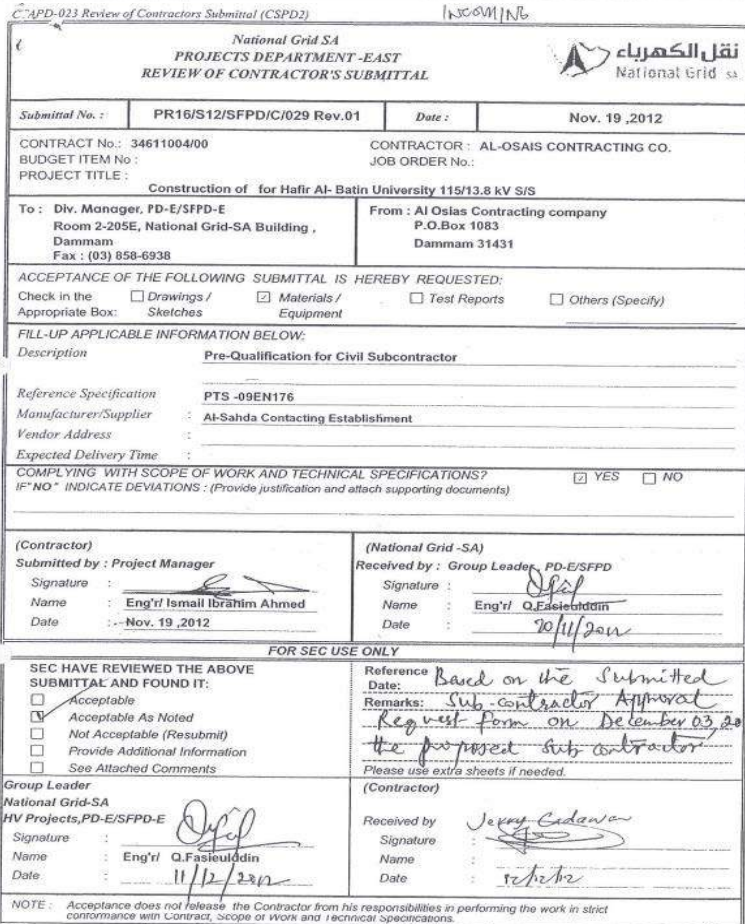 C APD-023 Review of Contractors Submittal (CSPD2)
INCOMING
National Grid SA
PROJECTS DEPARTMENT -EAST
REVIEW OF CONTRACTOR'S SUBMITTAL
نقل الكهرباء
National Grid SA
Submittal No. : PR16/S12/SFPD/C/029 Rev.01 Date : Nov. 19 ,2012
CONTRACT No.: 34611004/00 CONTRACTOR : AL-OSAIS CONTRACTING CO.
BUDGET ITEM No : JOB ORDER No.:
PROJECT TITLE :
Construction of for Hafir Al- Batin University 115/13.8 kV S/S
To : Div. Manager, PD-E/SFPD-E
Room 2-205E, National Grid-SA Building ,
Dammam
Fax : (03) 858-6938
From : Al Osias Contracting company
P.O.Box 1083
Dammam 31431
ACCEPTANCE OF THE FOLLOWING SUBMITTAL IS HEREBY REQUESTED:
Check in the Appropriate Box:
Drawings / Sketches
Materials / Equipment
Test Reports
Others (Specify)
FILL-UP APPLICABLE INFORMATION BELOW:
Description Pre-Qualification for Civil Subcontractor
Reference Specification PTS -09EN176
Manufacturer/Supplier : Al-Sahda Contacting Establishment
Vendor Address :
Expected Delivery Time :
COMPLYING WITH SCOPE OF WORK AND TECHNICAL SPECIFICATIONS? YES NO
IF"NO" INDICATE DEVIATIONS : (Provide justification and attach supporting documents)
(Contractor)
Submitted by : Project Manager
Signature :
Name : Eng'r/ Ismail Ibrahim Ahmed
Date : Nov. 19 ,2012
(National Grid -SA)
Received by : Group Leader, PD-E/SFPD
Signature :
Name : Eng'r/ Q.Fasieulddin
Date : 20/11/2012
FOR SEC USE ONLY
SEC HAVE REVIEWED THE ABOVE
SUBMITTAL AND FOUND IT:
Acceptable
Acceptable As Noted
Not Acceptable (Resubmit)
Provide Additional Information
See Attached Comments
Reference Based on the Submitted
Date:
Remarks: Sub-contractor Approval
Request Form on December 03, 20
the proposed Sub contractor
Please use extra sheets if needed.
Group Leader
National Grid-SA
HV Projects,PD-E/SFPD-E
Signature :
Name : Eng'r/ Q.Fasieulddin
Date : 11/12/2012
(Contractor)
Received by Jerry
Signature :
Name :
Date : 12/12/12
NOTE : Acceptance does not release the Contractor from his responsibilities in performing the work in strict
conformance with Contract, Scope of Work and Technical Specifications.